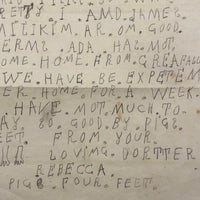 RETTY. I. AMD. JAMES.
MILIKIM. AR. OM. GOOD.
TERMS. ADA. HAS. MOT.
COME. HOME. FROM. GREAFALL
WE. HAVE. BE. EXPETEM
HER. HOME. FOR. A. WEEK.
I HAVE. MOT. MUCH. TO.
SAY. SO. GOOD. BY. PIGS.
FEET. FROM. YOUR.
LOVING. DORTTER
REBECCA.
PIGS. FOUR. FEET.